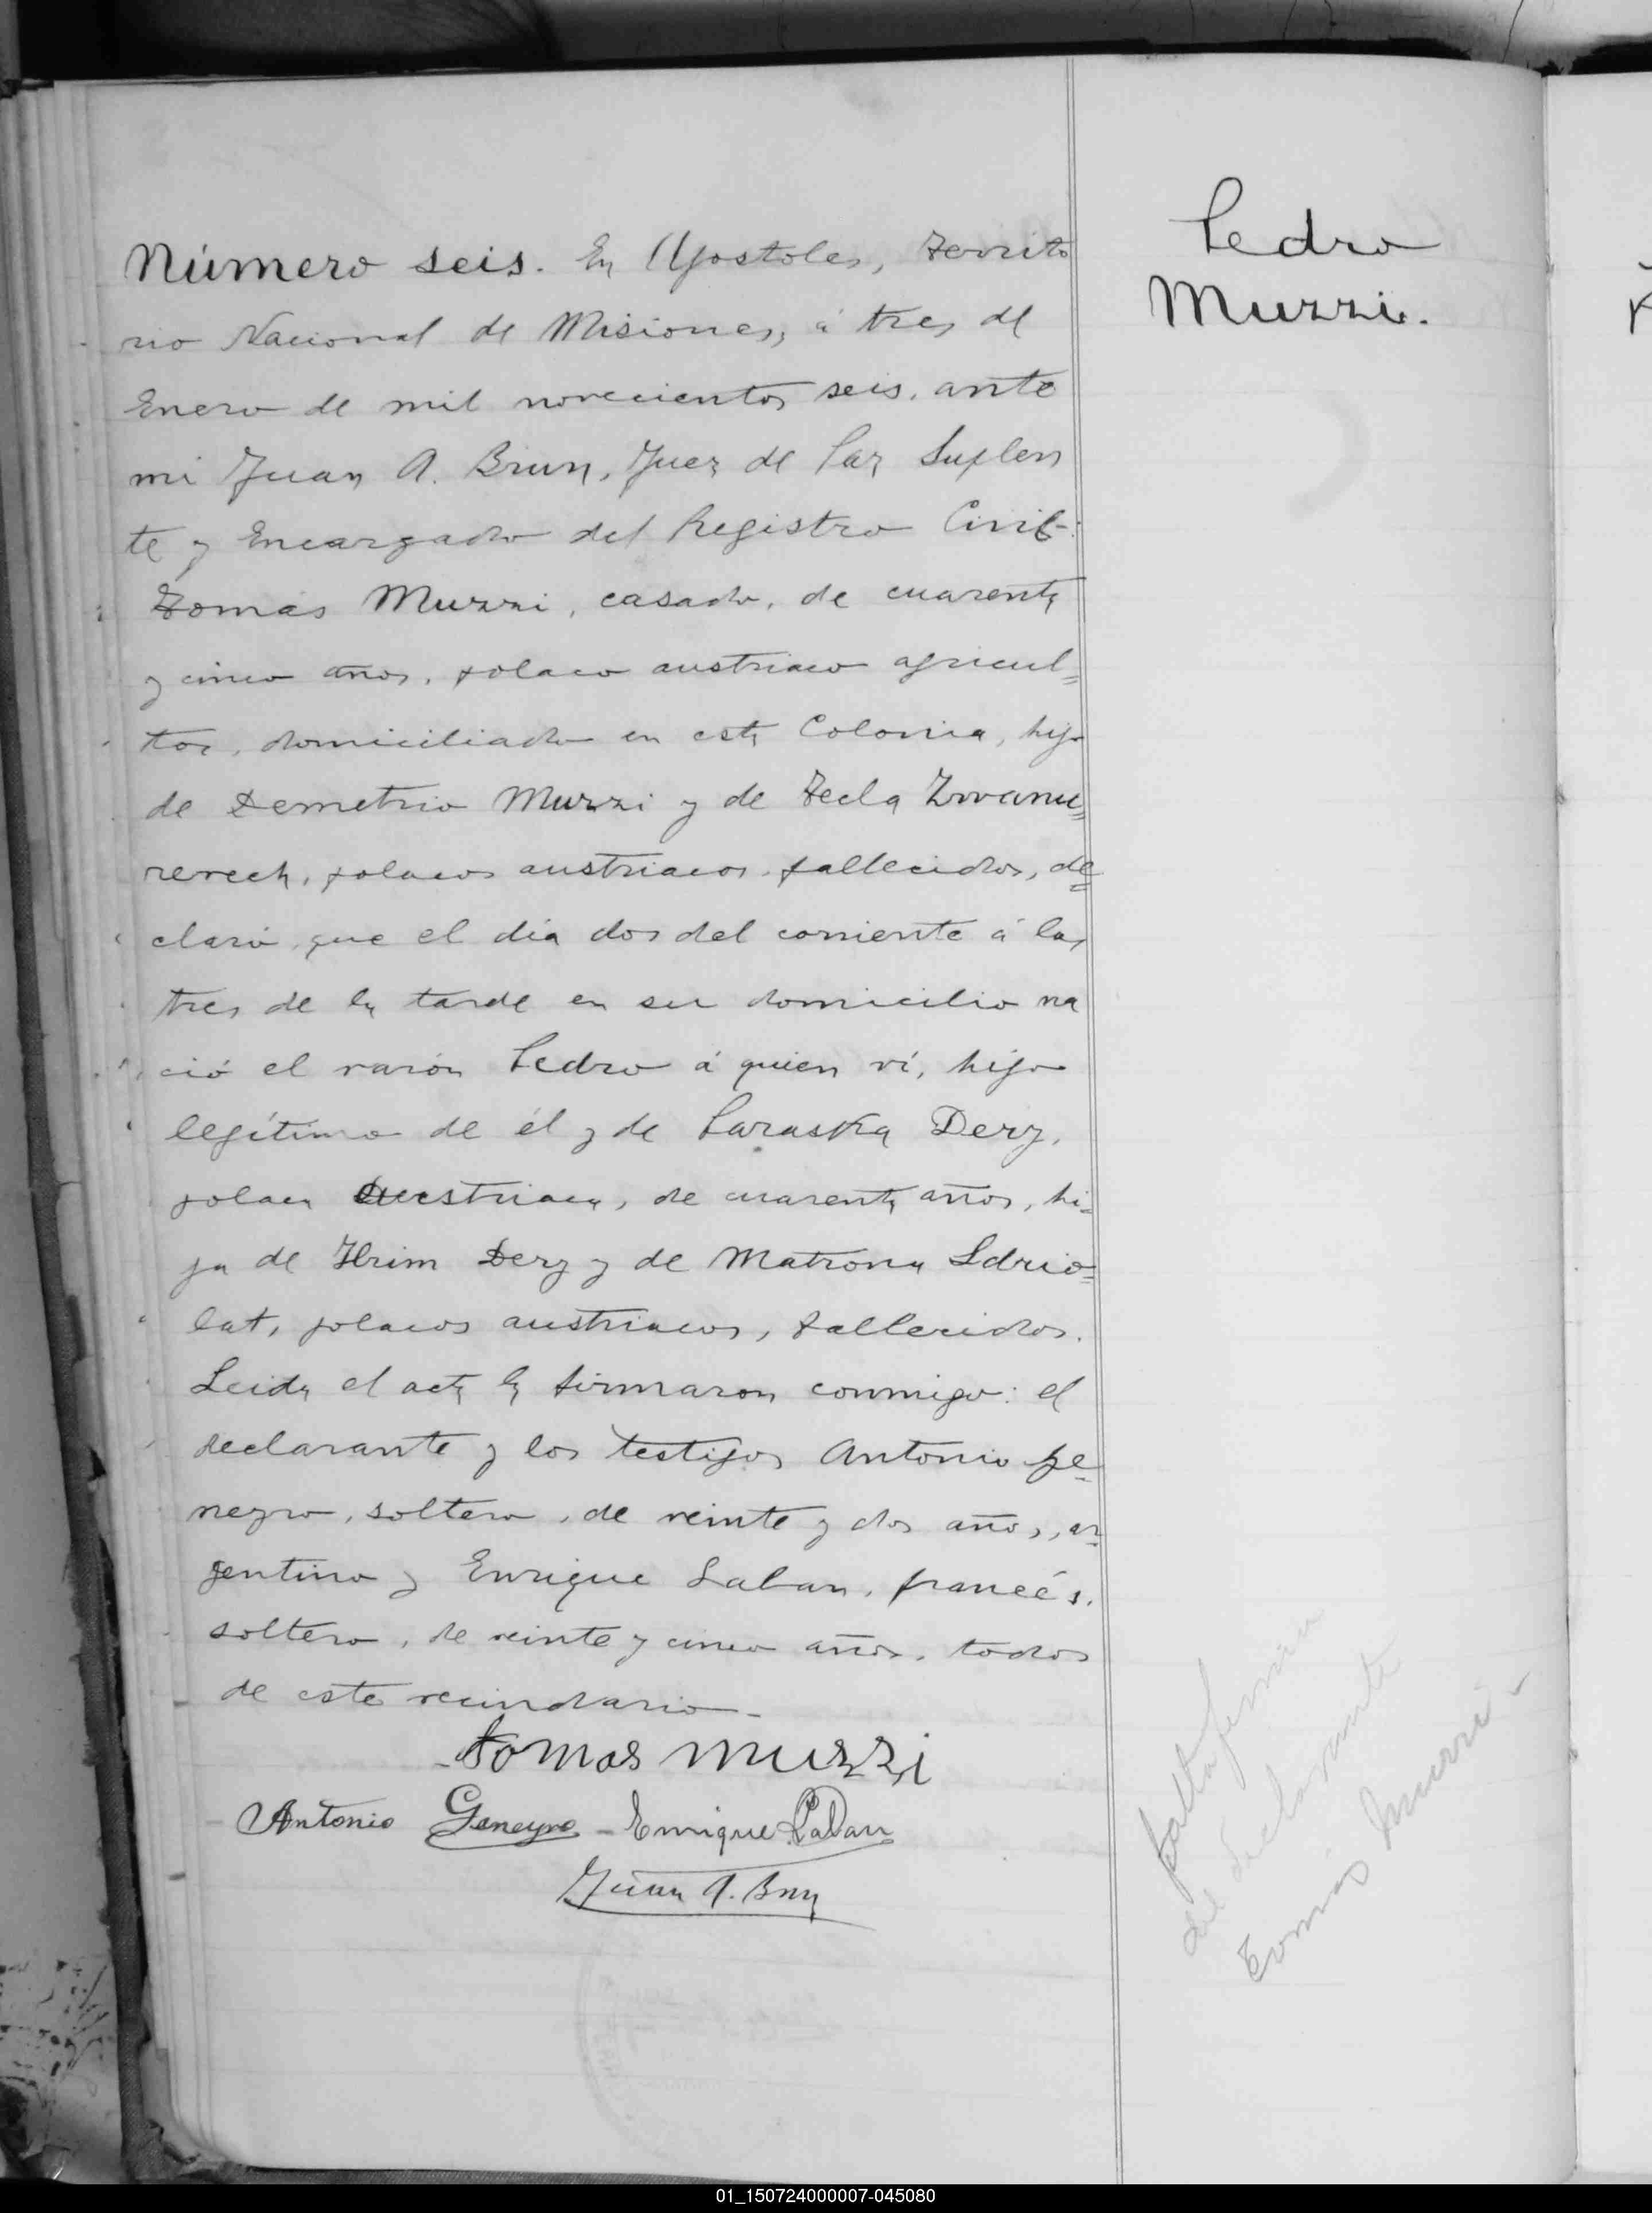 Pedro
Muzzi.
Número seis. En Apostoles, Territo
rio Nacional de Misiones, á tres de
Enero de mil novecientos seis, ante
mi Juan A. Brun, Juez de Paz Suplen
te y Encargado del Registro Civil:
Tomás Muzzi, casado, de cuarenta
y cinco años, polaco austriaco agricul=
tor, domiciliado en esta Colonia, hijo
de Demetrio Muzzi y de Tecla
polacos austriacos fallecidos, de=
claró que el día dos del corriente á las
tres de la tarde en su domicilio na
ció el varón Pedro á quien ví, hijo
legítimo de él y de Paraska Derz,
polaca Austriaca, de cuarenta años, hi=
ja de Derz y de Matrona
lat, polacos austriacos, fallecidos.
Leida el acta la firmaron conmigo: el
declarante y los testigos Antonio Ge=
neyro, soltero, de veinte y dos años, ar=
gentino y Enrique Laban, francés,
soltero, de veinte y cinco años, todos
de este vecindario_
Tomas Muzzi
Antonio Geneyro - Enrique Laban
Juan A. Brun
falta firma
del declarante
Tomás Muzzi
01_150724000007-045080